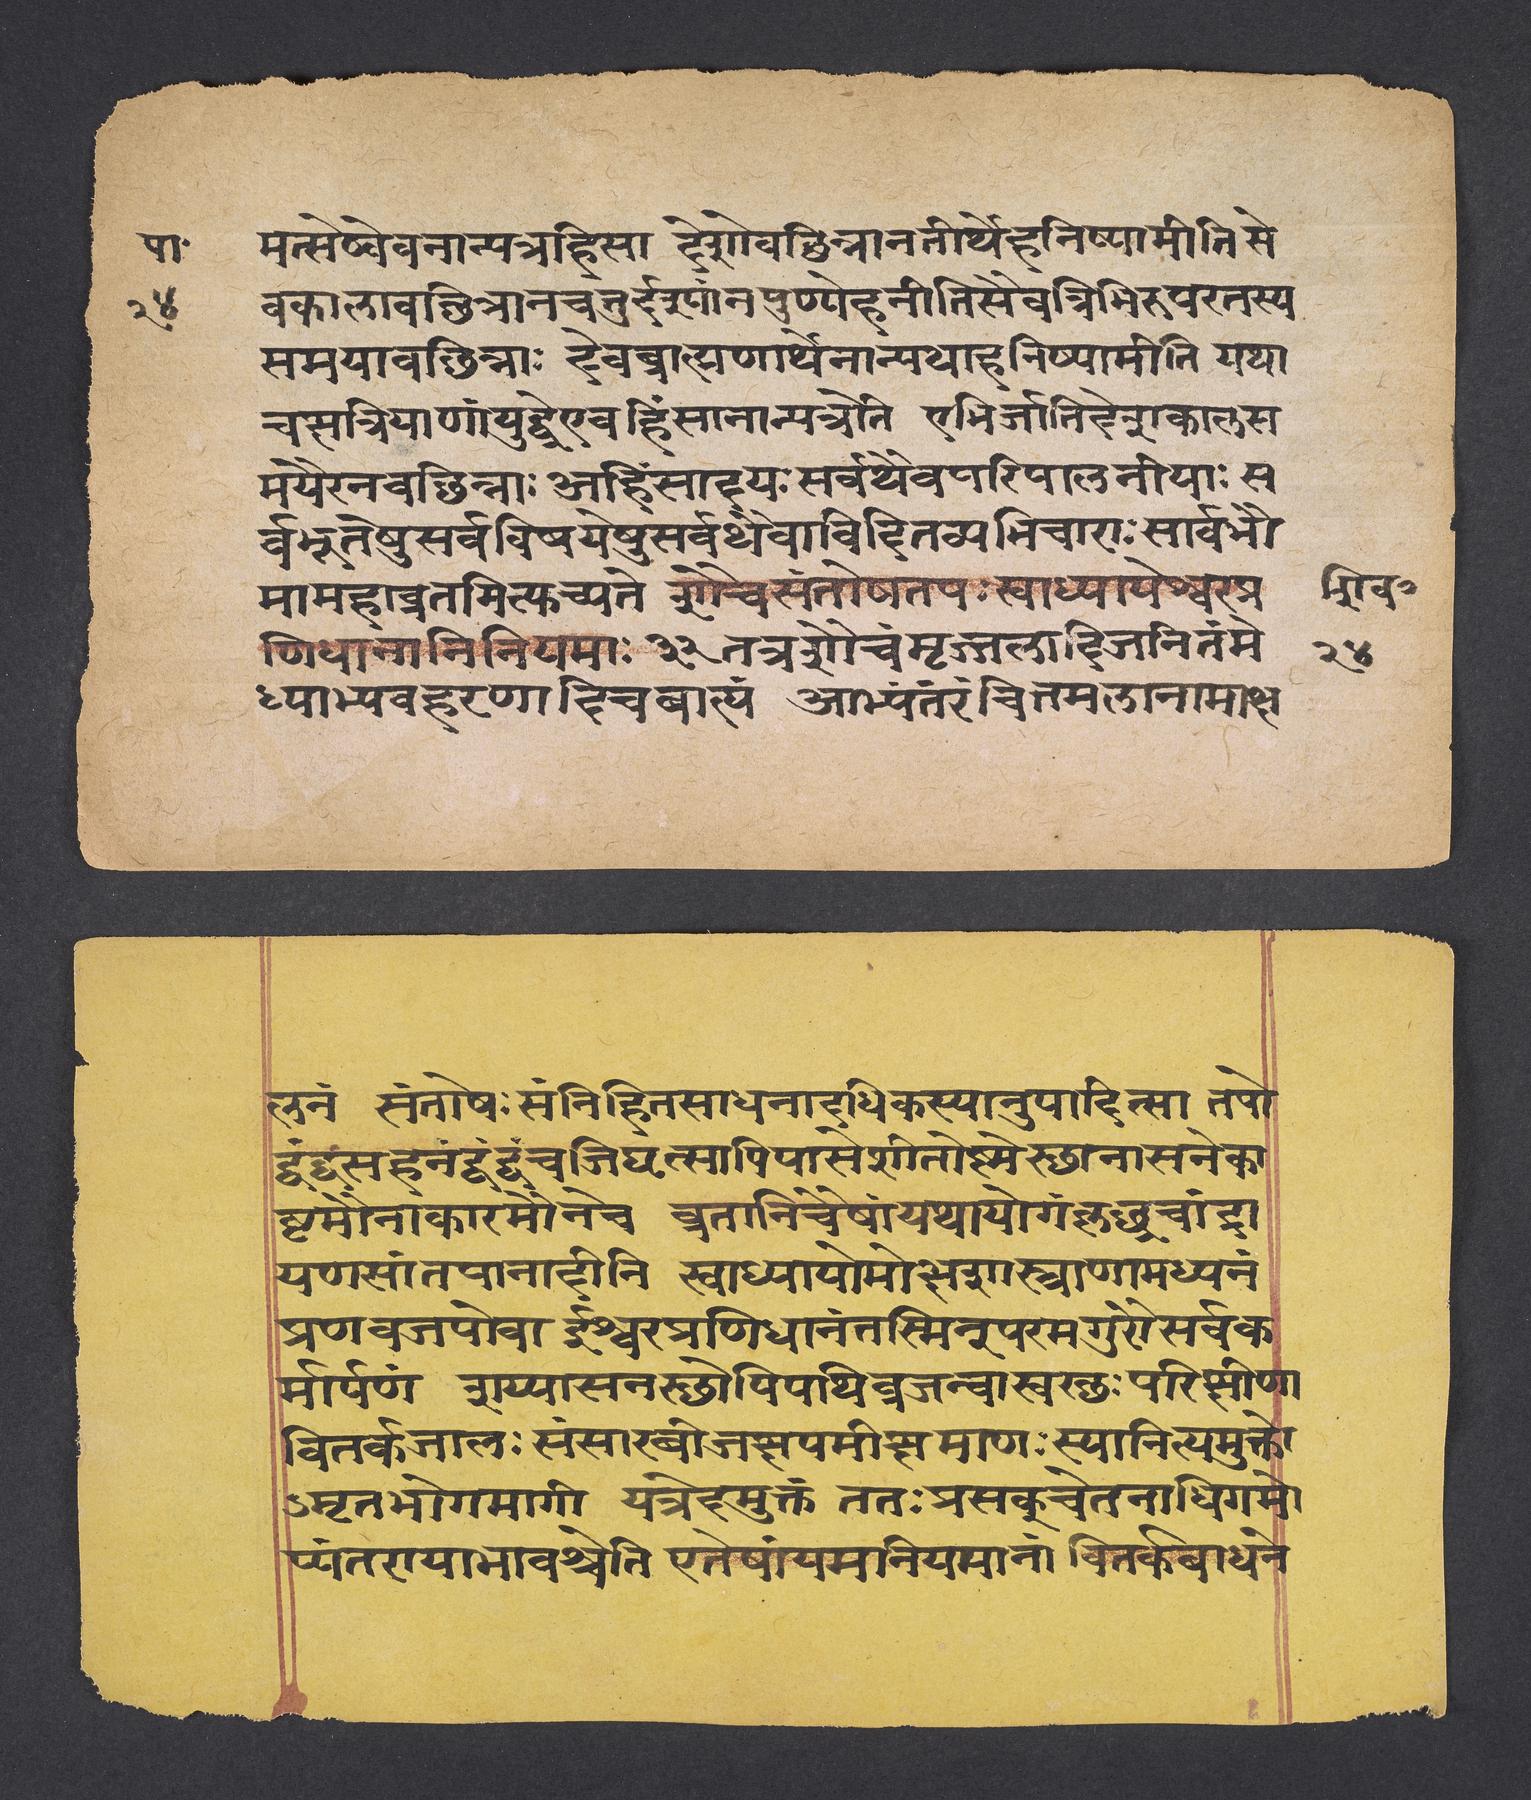 पा॰
२४
मत्सेष्वेवनान्यत्रहिंसा देशेवछिन्नानतीर्थेहनिष्यामीतिसै
वकालावछिन्नानचतुर्दश्यांनपुण्येहनीतिसैवत्रिभिरुपरतस्य
समयावछिन्नाः देवब्राह्मणार्थेनान्यथाहनिष्यामीति यथा
चक्षत्रियाणांयुद्धेएवहिंसानान्यत्रेति एभिर्जातिदेशकालस
मयैरनवछिन्नाः अहिंसादयः सर्वथैवपरिपालनीयाः स
र्वभूतेषुसर्वविषयेषुसर्वथैवाविदितव्यभिचाराः सार्वभौ
मामहाव्रतमित्युच्यते शौचसंतोषतपःस्वाध्यायेश्वरप्र
णिधानानिनियमाः ३२ तत्रशौचंमृज्जलादिजनितंमे
ध्याभ्यवहरणादिचबाह्यं आभ्यंतरंचित्तमलानामाक्ष
शिव॰
२४
लनं संतोषः संनिहितसाधनादधिकस्यानुपादित्सा तपो
द्वंद्वसहनंद्वंद्वंचजिघत्सापिपासेशीतोष्मेस्छानासनेका
ष्टमौनाकारमौनेच व्रतानिचैषांयथायोगंकृछ्रचांद्रा
यणसांतपानादीनि स्वाध्यायोमोक्षशास्त्राणामध्यनं
प्रणवजपोवा ईश्वरप्रणिधानंतस्मिन्परमगुरौसर्वक
र्मार्पणं शय्यासनस्छोपिपथिव्रजन्वास्वस्छः परिक्षीण
वितर्कजालः संसारबीजक्षपमीक्षमाणः स्यानित्यमुक्तो
ऽमृतभोगमागी यत्रेदमुक्तं ततः प्रसक्चेतनाधिगमो
प्यंतरायाभावश्चेति एतेषांयमनियमानां वितर्कबाधने